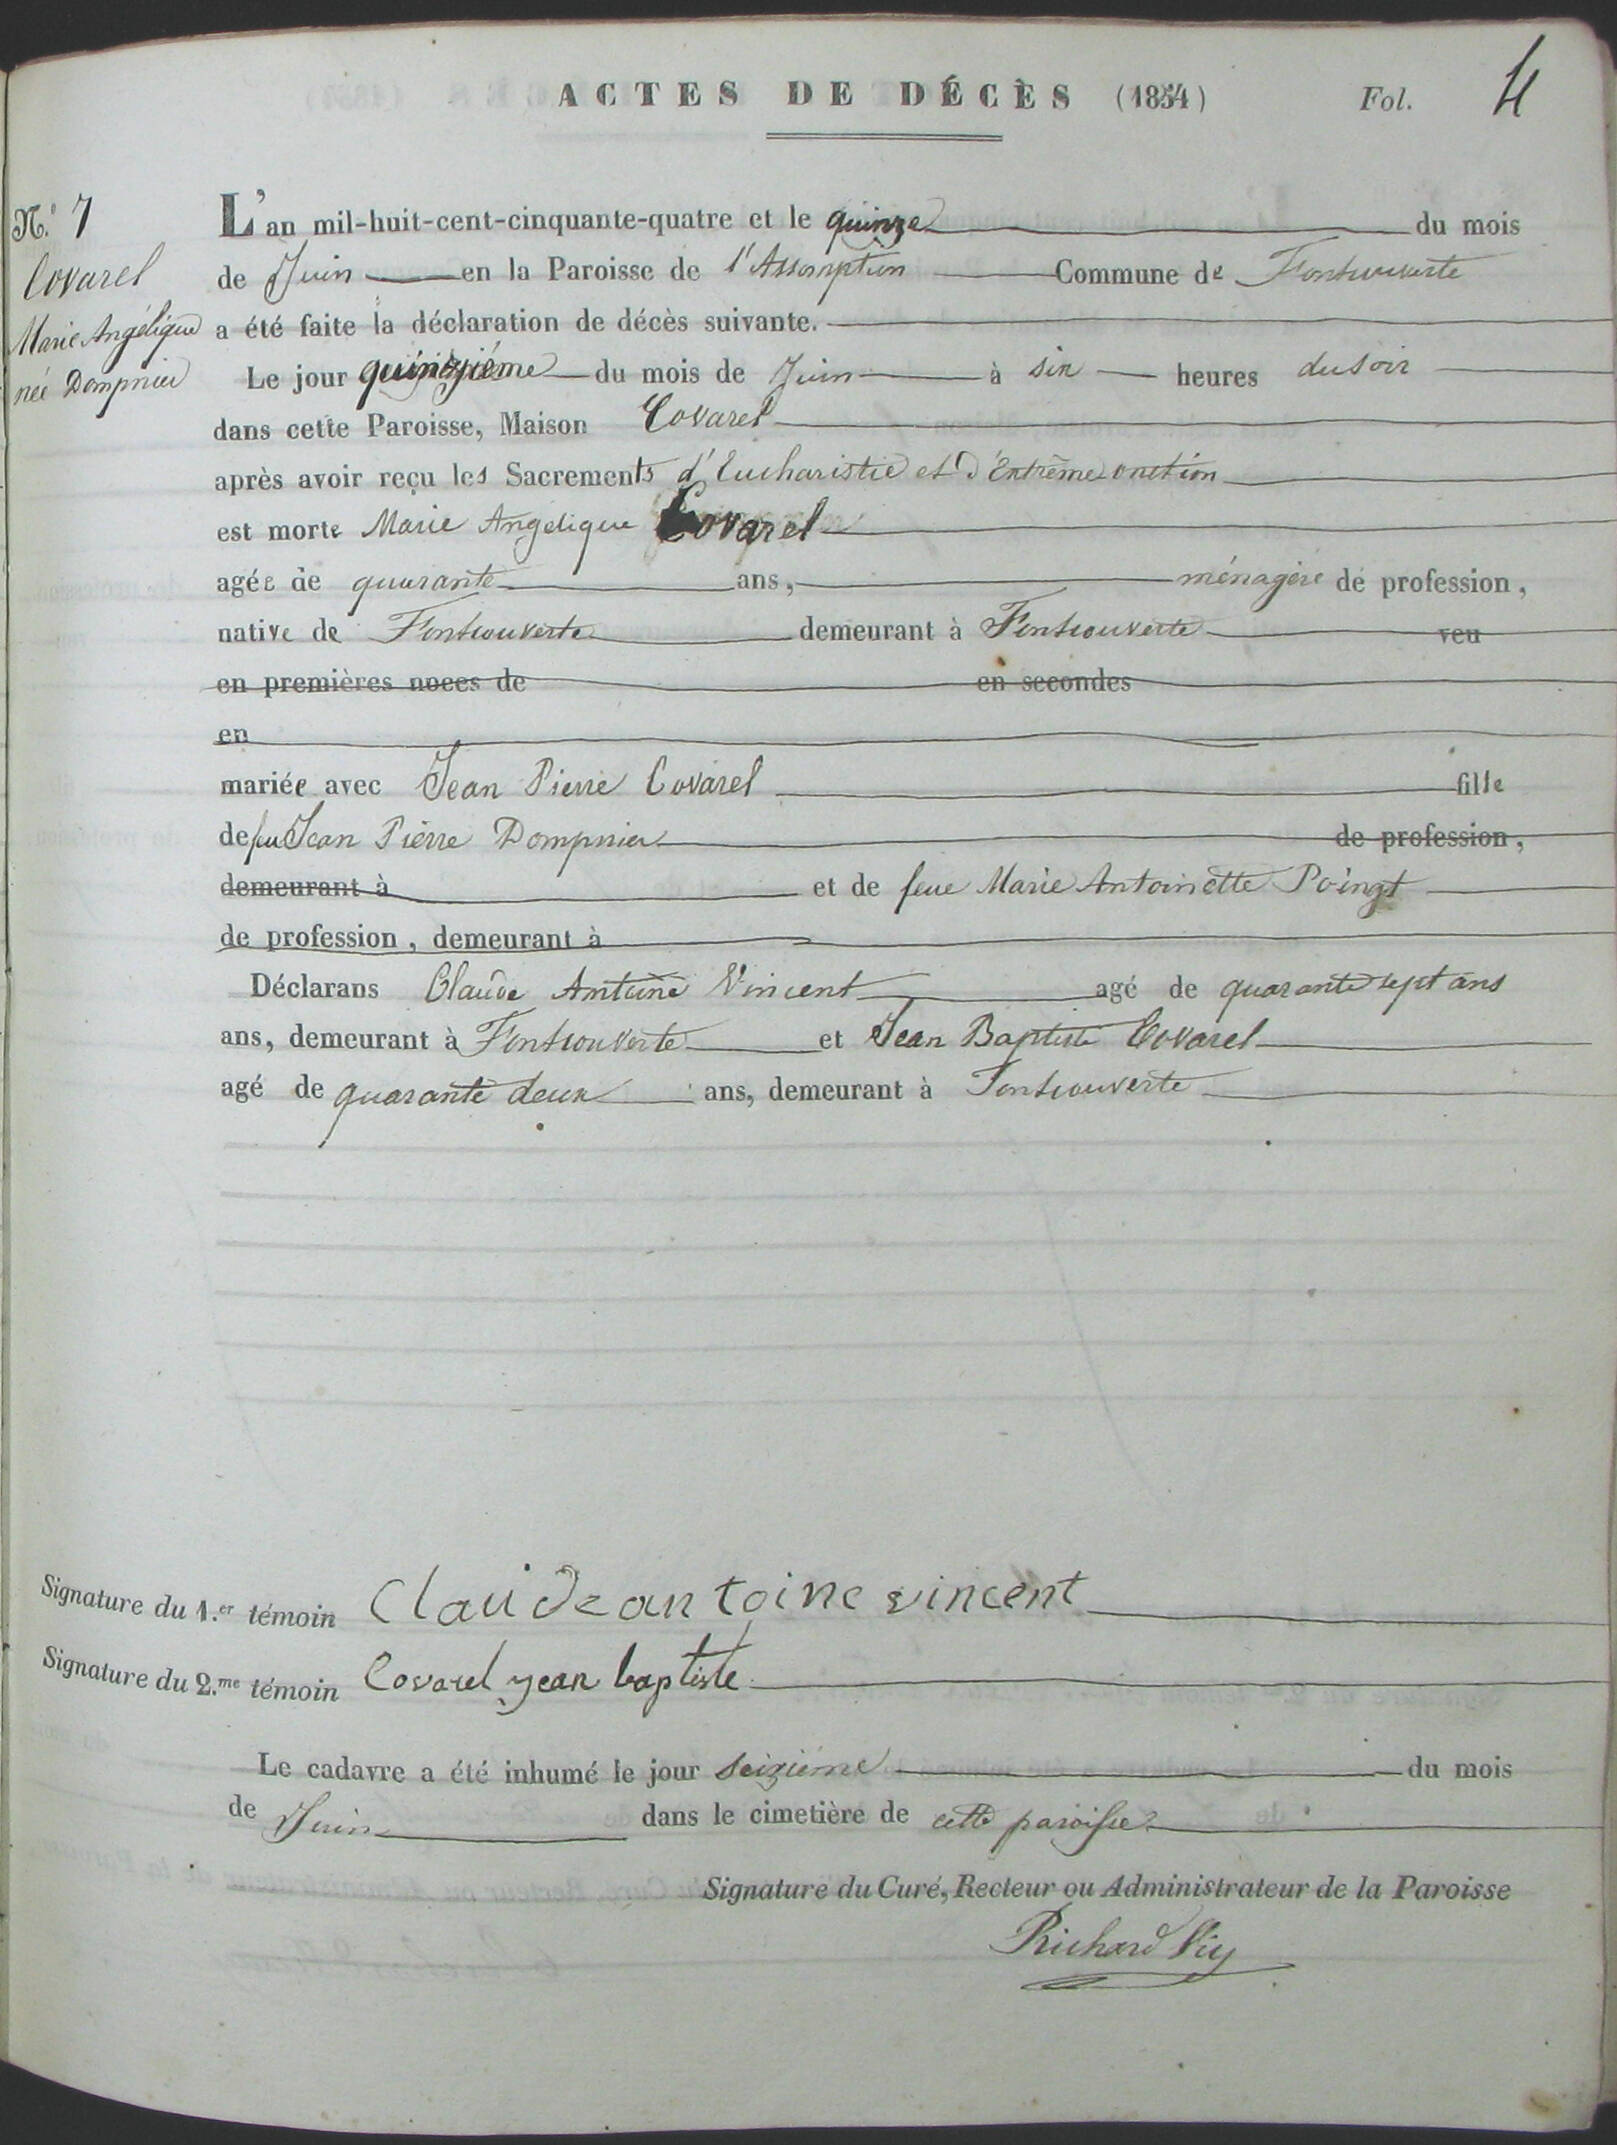 ACTES DE DÉCÈS (1854) Fol. 4
N.º 7
Covarel
Marie Angélique
née Dompnier
L'an mil-huit-cent-cinquante-quatre et le quinze du mois
de Juin en la Paroisse de l'Assomption Commune de Fontcouverte
a été faite la déclaration de décès suivante.
Le jour quinzième du mois de Juin à six heures du soir
dans cette Paroisse, Maison Covarel
après avoir reçu les Sacrements d'Eucharistie et d'Extrême onction
est morte Marie Angelique Covarel
agée de quarante ans, ménagère de profession,
native de Fontcouverte demeurant à Fontcouverte veu
en premières noces de en secondes
en
mariée avec Jean Pierre Covarel fille
de feu Jean Pierre Dompnier de profession,
demeurant à et de feue Marie Antoinette Poingt
de profession, demeurant à
Déclarans Claude Antoine Vincent agé de quarante sept ans
ans, demeurant à Fontcouverte et Jean Baptiste Covarel
agé de quarante deux ans, demeurant à Fontcouverte
Signature du 1.er témoin Claude antoine vincent
Signature du 2.me témoin Covarel jean baptiste
Le cadavre a été inhumé le jour seizième du mois
de Juin dans le cimetière de cette paroisse
Signature du Curé, Recteur ou Administrateur de la Paroisse
Richard